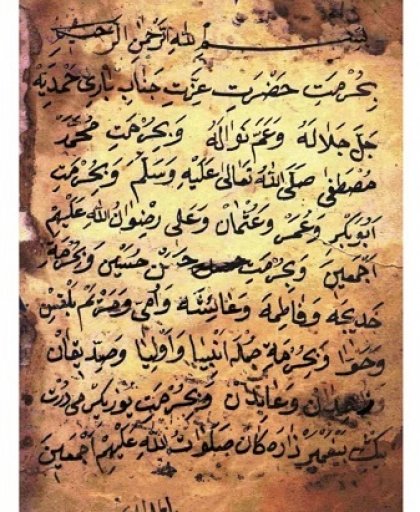 بسم الله الرحمن الرحيم
بحُرمَتِ حَضرَتِ عِزَت جَنابِ باري
جَلَ جَلالَهُ وَعَمَّ نَوالَهُ وَبحُرمَتِ مُحَمَد
مُصطَفىٰ صَلَى اللهُ تَعالىٰ عَلَيهِ وَسَلَم وَبحُرمَتِ
اَبُوبَكر وَعُمَر وَعُثمان وَعَلى رِضوانُ اللهِ عَلَيهِم
اَجمَعينَ وَبحُرمَتِ حَسَن حُسَين وَبحُرمَة
خَديجه وَفاطِمَه وَعائِشَه وَ بلقيس
وَحَوا وَبحُرمَة جُملَه انبيا وَاَوليا وَصديقان
وَعابدان وَبحُرمَت
پَيغَمبَر صَلَوات اللهِ عَلَيهِم اَجمَعين